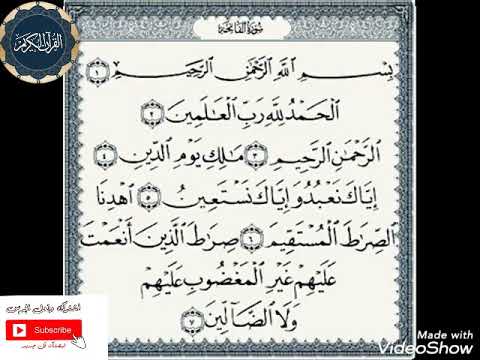 القرآن الكريم
سورة الفاتحة
بِسْمِ ٱللَّهِ ٱلرَّحْمَٰنِ ٱلرَّحِيمِ ١
ٱلْحَمْدُ لِلَّهِ رَبِّ ٱلْعَٰلَمِينَ ٢
ٱلرَّحْمَٰنِ ٱلرَّحِيمِ ٣ مَٰلِكِ يَوْمِ ٱلدِّينِ ٤
إِيَّاكَ نَعْبُدُ وَإِيَّاكَ نَسْتَعِينُ ٥ ٱهْدِنَا
ٱلصِّرَٰطَ ٱلْمُسْتَقِيمَ ٦ صِرَٰطَ ٱلَّذِينَ أَنْعَمْتَ
عَلَيْهِمْ غَيْرِ ٱلْمَغْضُوبِ عَلَيْهِمْ
وَلَا ٱلضَّآلِّينَ ٧
Subscribe
Made with
VideoShow